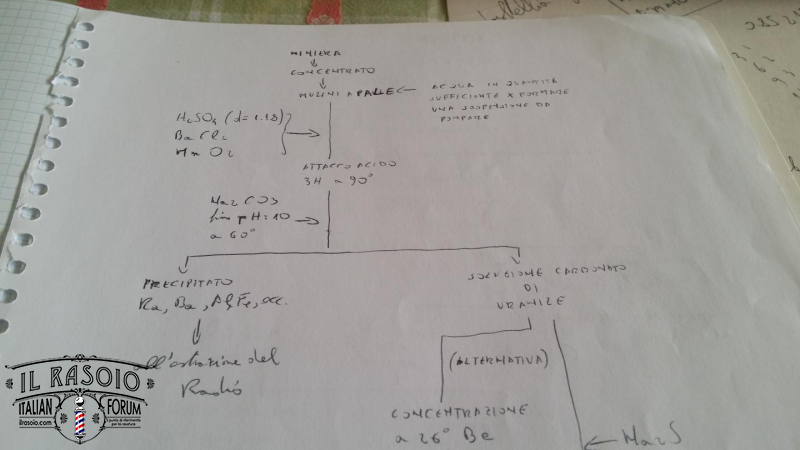 MINIERA
CONCENTRATO
MULINI A PALLE
ACQUA IN QUANTITÀ
SUFFICIENTE X FORMARE
UNA SOSPENSIONE DA
POMPARE
H2SO4 (d=1.18)
BaCl2
MnO2
ATTACCO ACIDO
3H a 90°
Na2CO3
fino pH=10
a 60°
PRECIPITATO
Ra, Ba, Al, Fe, ecc.
all'estrazione del
Radio
SOLUZIONE CARBONATO
DI
URANILE
(ALTERNATIVA)
CONCENTRAZIONE
a 26° Be
Na2S
IL RASOIO
ITALIAN
FORUM
ilrasoio.com